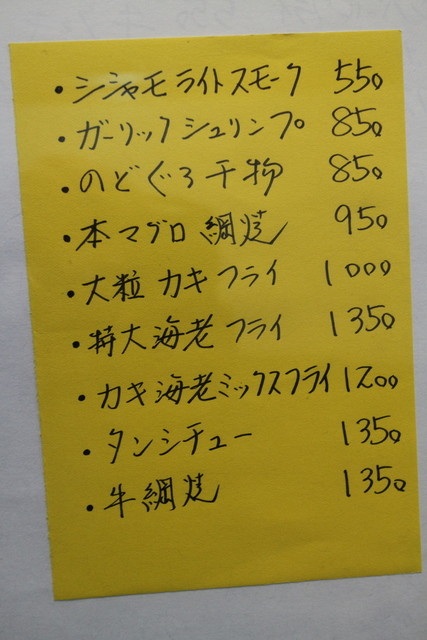 ・シシャモライトスモーク 550
・ガーリックシュリンプ 850
・のどぐろ干物 850
・本マグロ 網焼 950
・大粒 カキフライ 1000
・特大海老フライ 1350
・カキ海老ミックスフライ 1200
・タンシチュー 1350
・牛網焼 1350